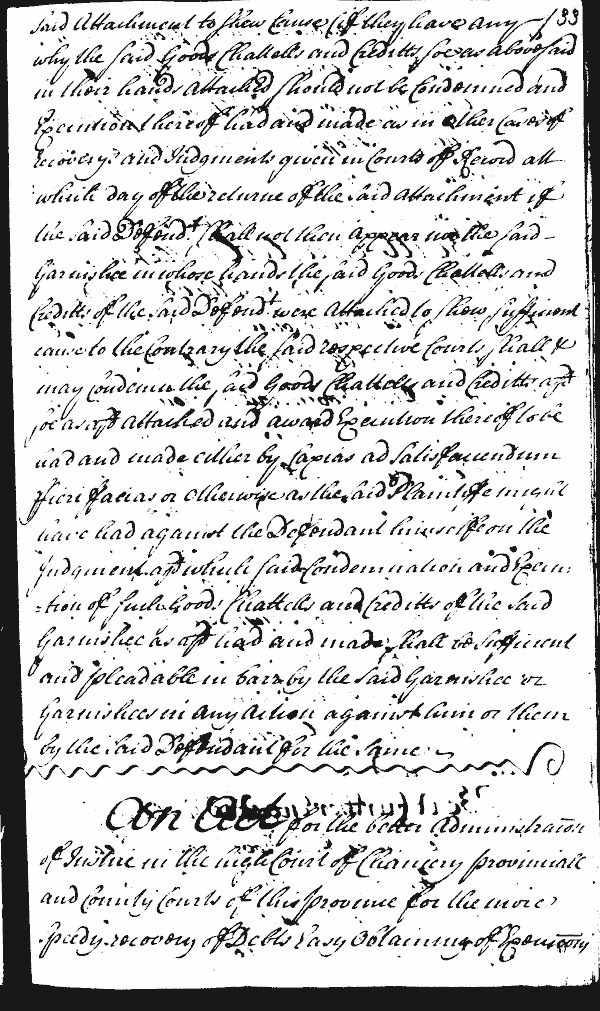 said Attachment to shew Cause (if they have any) 133
why the said Goods Chattells and Creditts soe as abovesaid
in their hands Attached should not be Condemned and
Execution thereof had and made as in other Cases of
recovery and Judgments given in Courts of Record att
which day of the returne of the said Attachment if
the said Defendt. shall not then Appear nor the said
Garnishee in whose hands the said Goods Chattells and
Creditts of the said Defendt were Attached to shew sufficient
cause to the Contrary the said respective Courts shall &
may condemn the said Goods Chattells and Creditts afsd
soe as afsd attached and award Execution thereof to be
had and made either by Capias ad Satisfaciendum
ffieri facias or otherwise as the said Plaintiffe might
have had against the Defendant himselfe on the
Judgment afsd which said Condemnation and Execu:
=tion of such Goods Chattells and Creditts of the said
Garnishee as afsd had and made shall be sufficient
and pleadable in barr by the said Garnishee or
Garnishees in any Action against him or them
by the said Defendant for the same
An Act for the better Administracon
of Justice in the high Court of Chancery provinciall
and County Courts of this province for the more
speedy recovery of Debts Easy Obtaining of